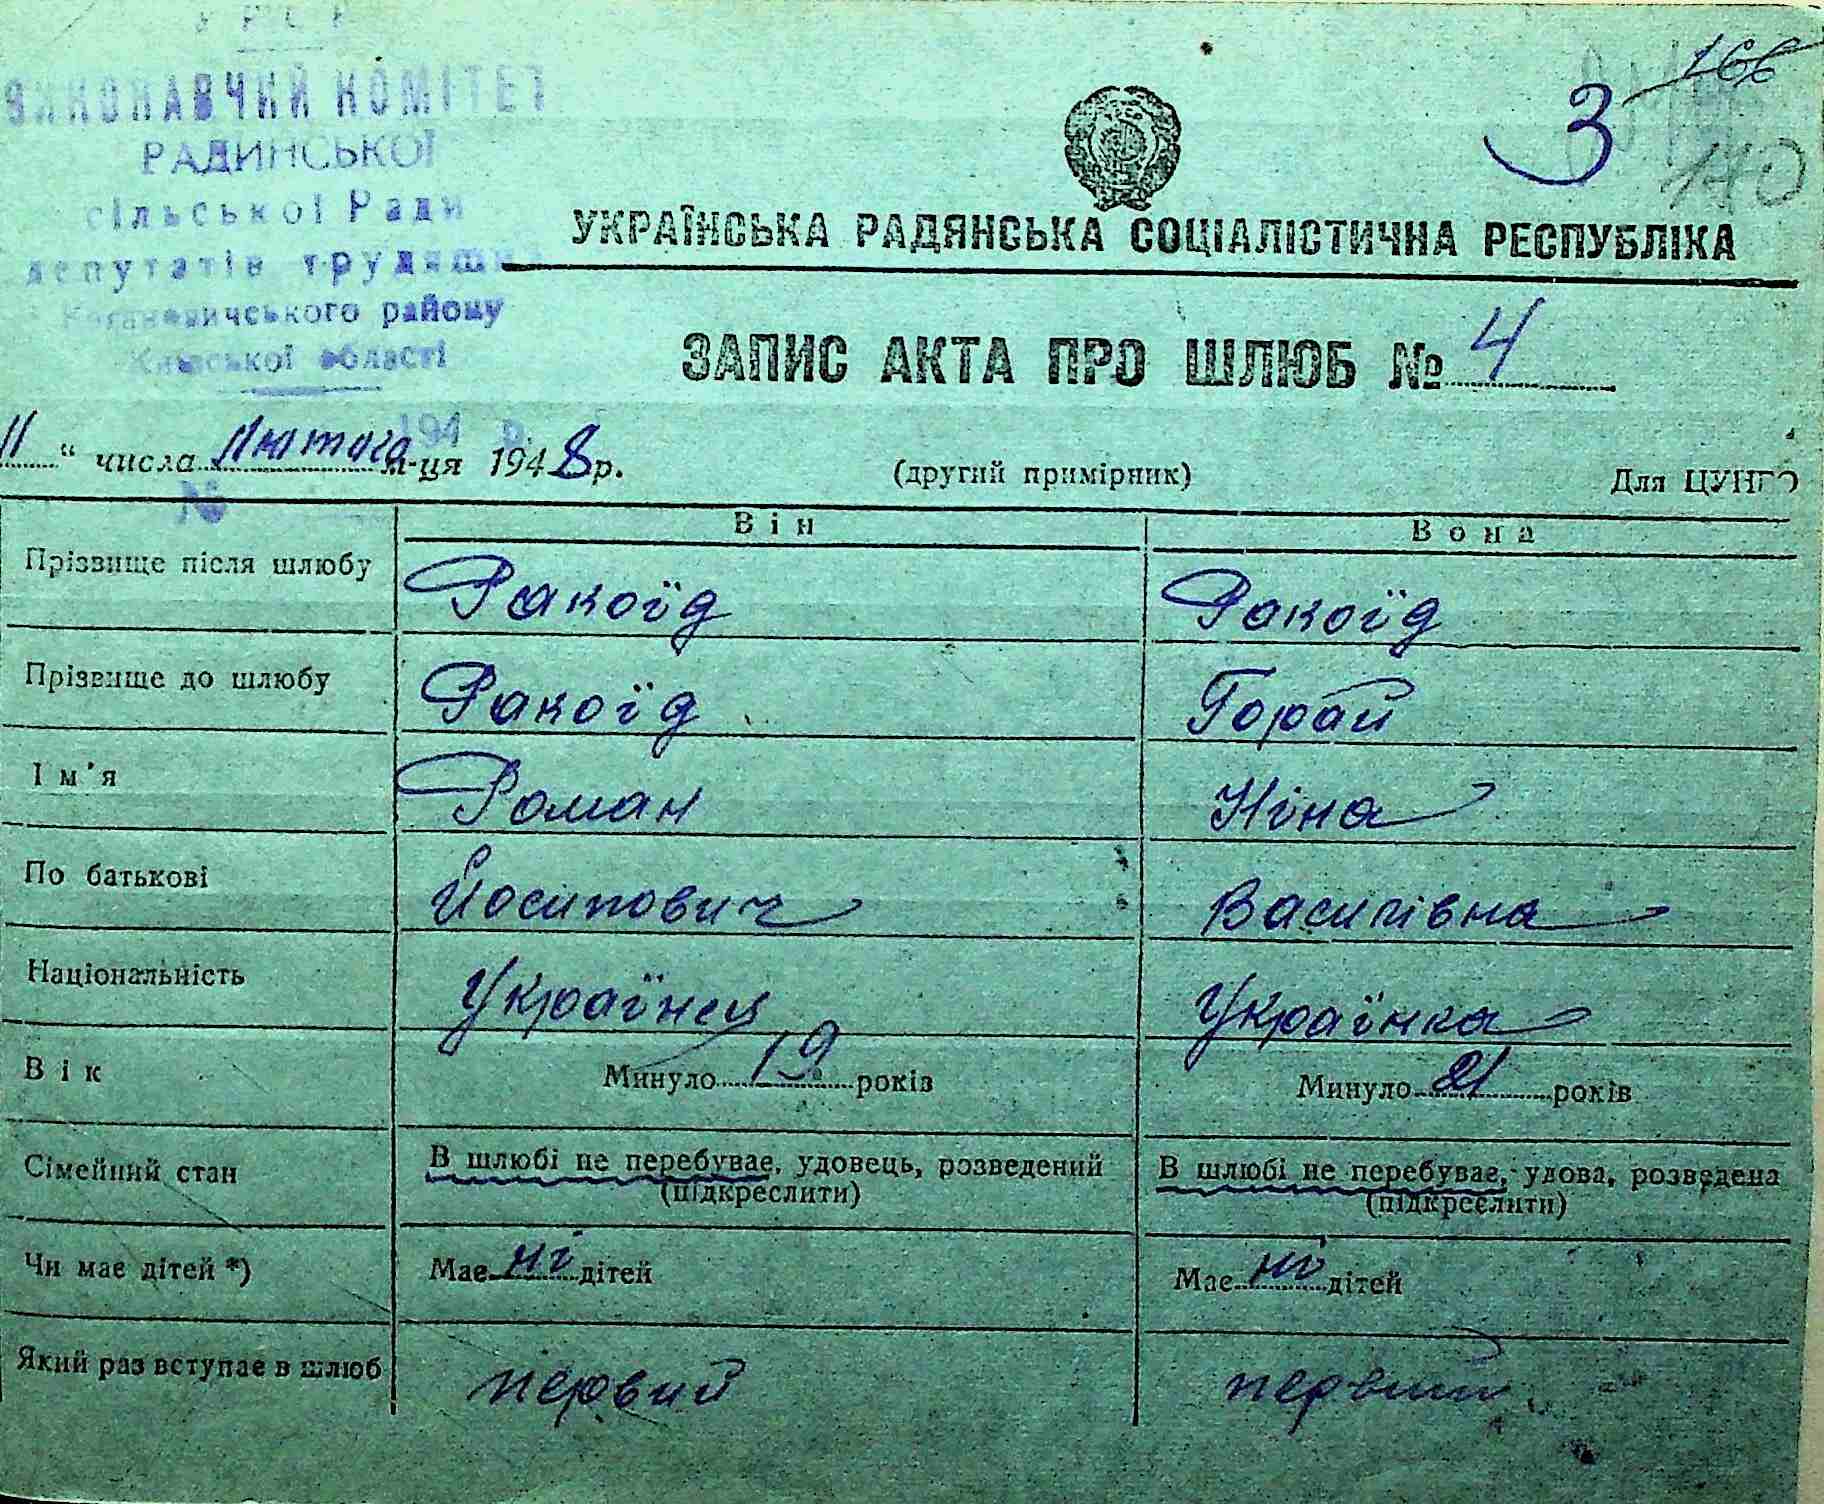 УРСР
ВИКОНАВЧИЙ КОМІТЕТ
РАДИНСЬКОЇ
сільської Ради
депутатів трудящих
Кагановичського району
Київської області
194 р.
№
166
3
110
УКРАЇНСЬКА РАДЯНСЬКА СОЦІАЛІСТИЧНА РЕСПУБЛІКА
ЗАПИС АКТА ПРО ШЛЮБ № 4
11 " числа Лютого м-ця 1948 р. (другий примірник) Для ЦУНГО
Він Вона
Прізвище після шлюбу Ракоїд Ракоїд
Прізвище до шлюбу Ракоїд Горай
Ім'я Роман Ніна
По батькові Йосипович Василівна
Національність Українец Українка
Вік Минуло 19 років Минуло 21 років
Сімейний стан В шлюбі не перебуває, удовець, розведений В шлюбі не перебуває, удова, розведена
(підкреслити) (підкреслити)
Чи має дітей *) Має ні дітей Має ні дітей
Який раз вступає в шлюб первий первий